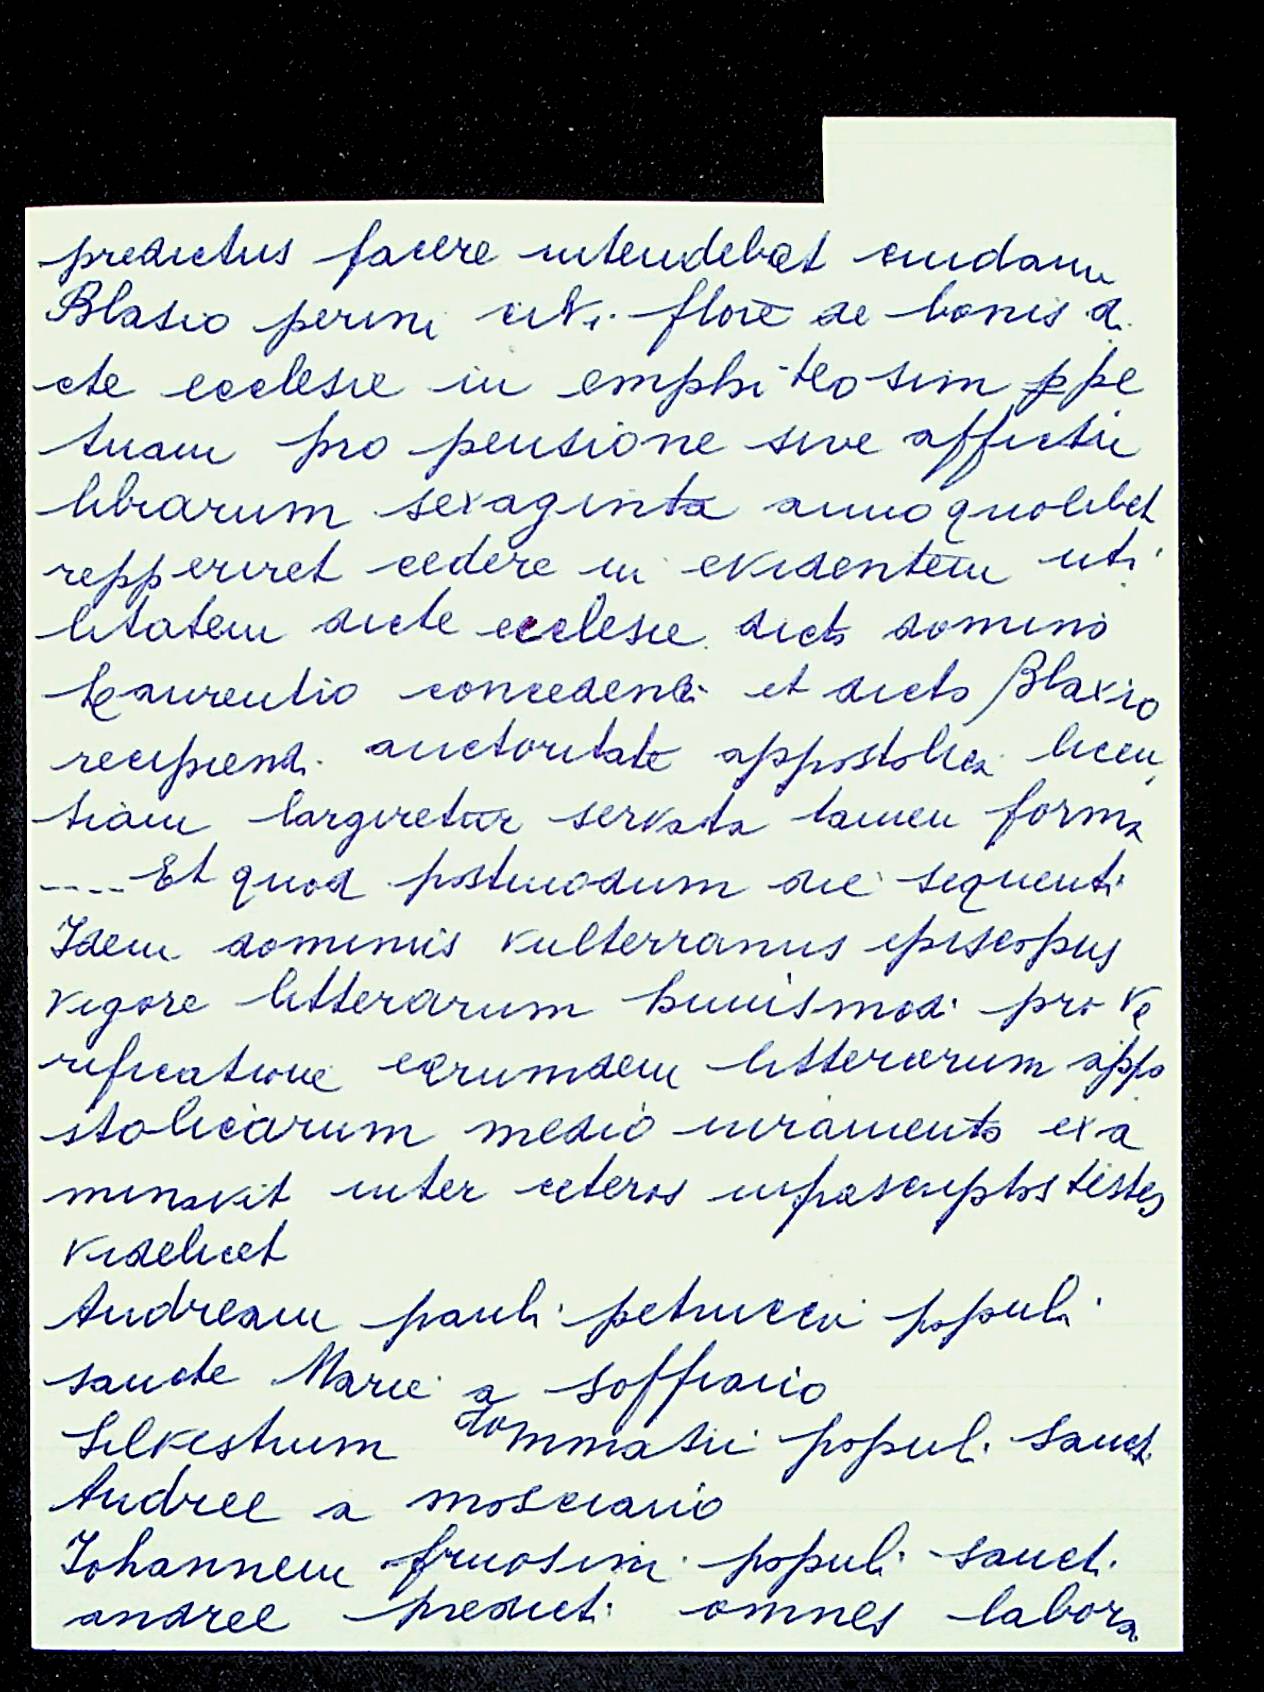 predictus facere intendebat cuidam
Blasio perini civi. flore de bonis di
cte ecclesie in emphiteosim ppe
tuam pro pensione sive affictu
librarum sexaginta anno quolibet
repperiret cedere in evidentem uti
litatem dicte ecclesie dicto domino
Laurentio concedendi et dicto Blaxio
recipiendi auctoritate appostolica licen
tiam largiretur servata tamen forma
.... Et quod postmodum die sequenti
Idem dominus vulterranus episcopus
vigore litterarum huiusmodi pro ve
rificatione earumdem litterarum appo
stolicarum medio iuramento exa
minavit inter ceteros infrascriptos testes
videlicet
Andream pauli petruccii populi
sancte Marie a soffiano
Silvestrum tommasii populi sancti
Andree a mosciano
Iohannem fruosini populi sancti
andree predicti omnes labora